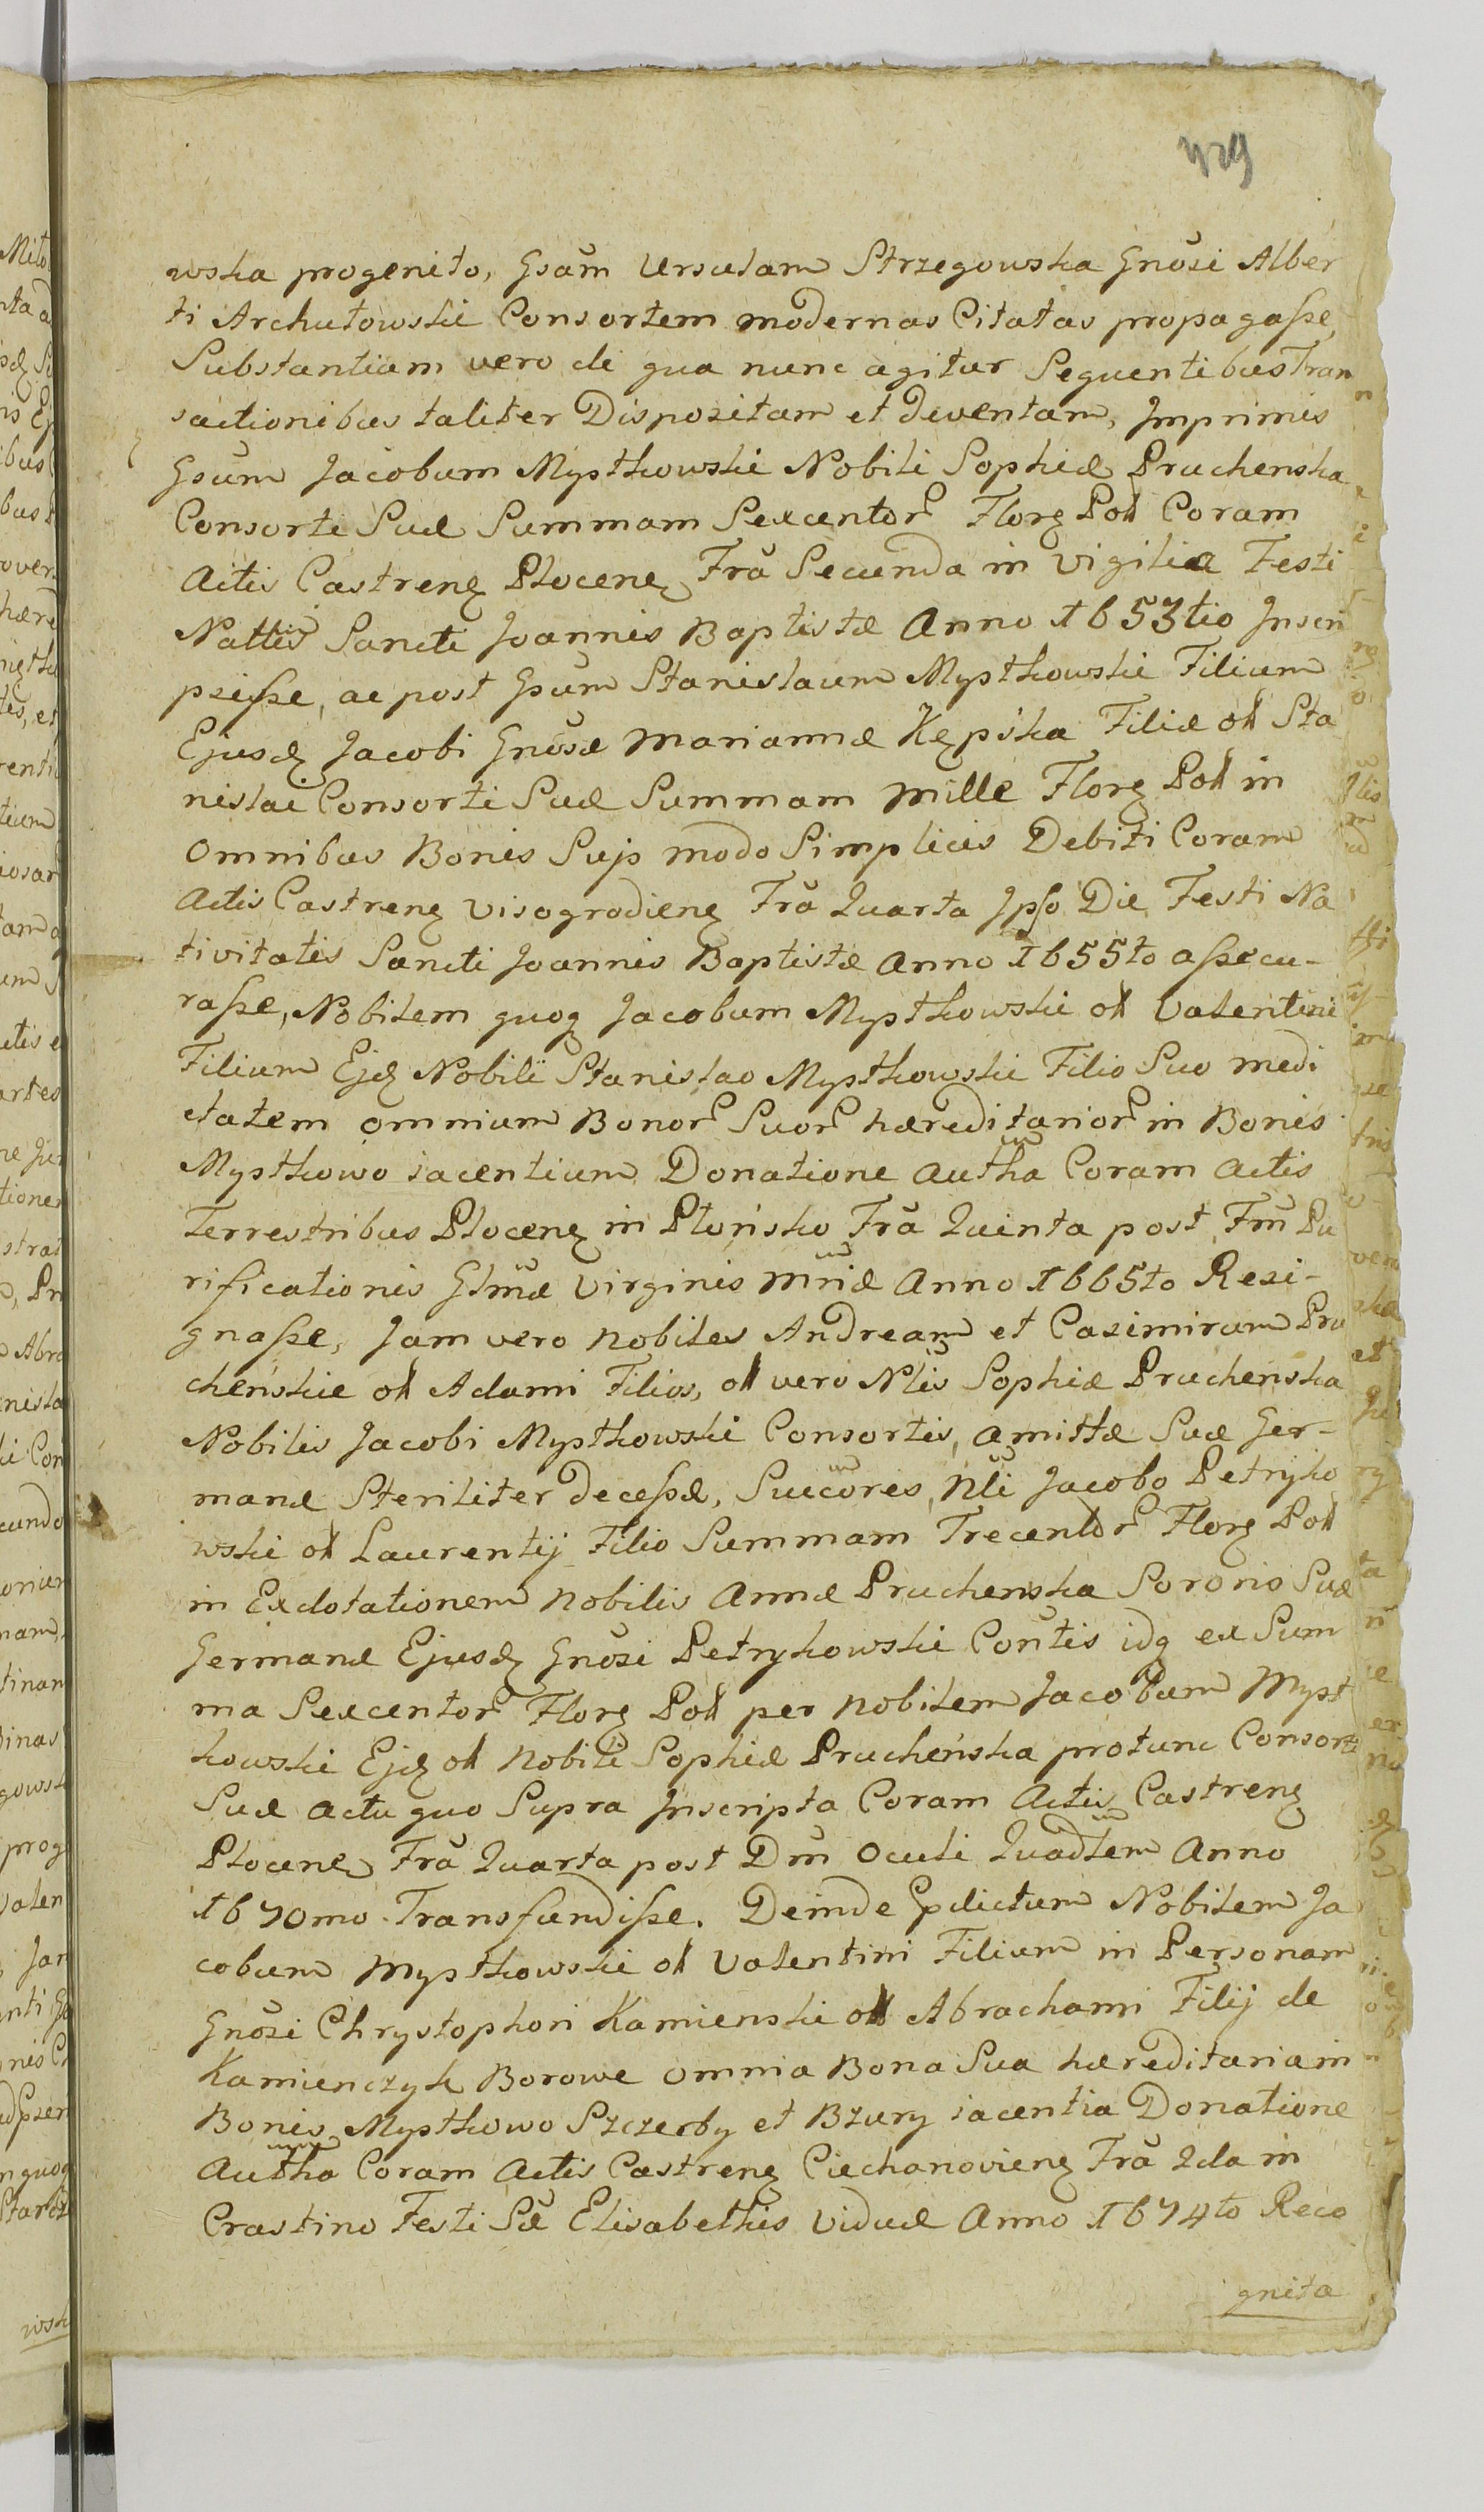 429
wska progenito, Gsam Ursulam Strzegowska Gnosi Alber
ti Archutowski Consortem modernas Citatas propagaſse,
Substantiam vero de qua nunc agitur Sequentibus Tran
sactionibus taliter Dispositam et deventam, Imprimis
Gsum Jacobum Mystkowski Nobili Sophiæ Pruchenska
Consorte Suæ Summam Sexcentor Florq Poll Coram
Actis Castrenq Plocenq Fra Secunda in vigilia Festi
Nattis Sancti Joannis Baptistæ Anno 1653tio Inscri
psiſse, ac post Gsum Stanislaum Mystkowski Filium
Ejusdq Jacobi Gnosæ Mariannæ Kępska Filiæ oll Sta
nislai Consorti Suæ Summam mille Florq Poll in
Omnibus Bonis Sujs modo Simplicis Debiti Coram
Actis Castrenq Visogrodienq Fra Quarta Ipſo Die Festi Na
tivitatis Sancti Joannis Baptistæ Anno 1655to aſsecu-
raſse, Nobilem quoq Jacobum Mystkowski oll Valentini
Filium Ejdq Nobili Stanislao Mystkowski Filio Suo medi
etatem omnium Bonor Suor hæreditarior in Bonis
Mystkowo iacentium Donatione Autha Coram Actis
Terrestribus Plocenq in Płońsko Fra Quinta post Fm Pu
rificationis Glmæ Virginis Mriæ Anno 1665to Resi-
gnaſse, Jam vero nobiles Andream et Casimirum Pru
cheńskie oll Adami Filios, oll vero Nlis Sophiæ Pruchenska
Nobilis Jacobi Mystkowski Consortis, amittæ Suæ Ger-
manæ Steriliter deceſsæ, Succores, Nli Jacobo Petryko
wski oll Laurentij Filio Summam Trecentor Florq Poll
in Exdotationem nobilis Annæ Pruchenska Sororis Suæ
Germanæ Ejusdq Gnosi Petrykowski Contis idq ex Sum
ma Sexcentor Florq Poll per nobilem Jacobum Myst
kowski Ejdq oll nobili Sophiæ Prucheńska protunc Consorti
Suæ actu quo Supra Inscripta Coram Actis Castrenq
Plocenq Fra Quarta post Dm Oculi Quadlem Anno
1670mo Transfundiſse. Deinde Pdictum Nobilem Ja
cobum Mystkowski oll Valentini Filium in Personam
Gnosi Chrystophori Kamienski oll Abrachami Filij de
Kamienczyk Borowe omnia Bona Sua hæreditaria in
Bonis Mystkowo Szczerby et Bzury iacentia Donatione
Autha Coram Actis Castrenq Ciechanovienq Fra 2da in
Crastino Festi Sæ Elisabethis Viduæ Anno 1674to Reco
gnita